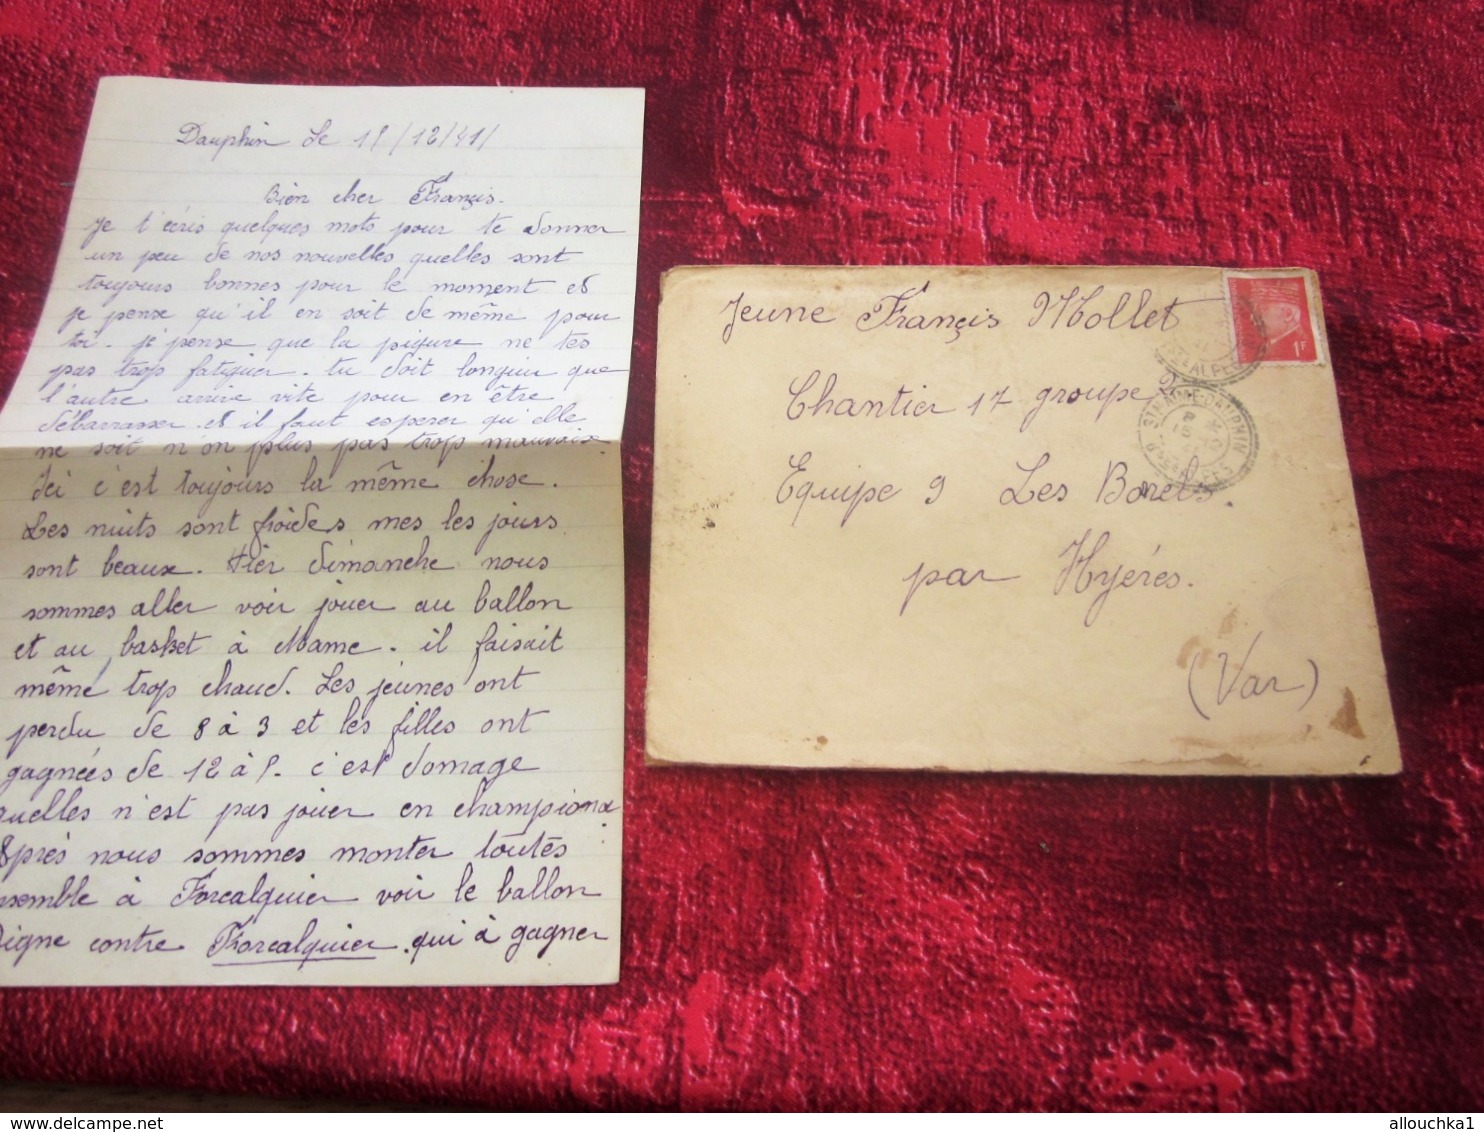 Dauphin le 15/12/41/
Bien cher Françis.
Je t'écris quelques mots pour te donner
un peu de nos nouvelles quelles sont
toujours bonnes pour le moment et
je pense qu'il en soit de même pour
toi. je pense que la piqure ne tes
pas trop fatiguer. tu doit languir que
l'autre arrive vite pour en être
débarrasser et il faut esperer qu'elle
ne soit n'on plus pas trop mauvaise
Ici c'est toujours la même chose.
Les nuits sont froides mes les jours
sont beaux. Hier dimanche nous
sommes aller voir jouer au ballon
et au basket à Mane. il faisait
même trop chaud. Les jeunes ont
perdu de 8 à 3 et les filles ont
gagnées de 12 à 8. c'est domage
quelles n'est pas jouer en championa
Après nous sommes monter toutes
ensemble à Forcalquier voir le ballon
Digne contre Forcalquier. qui à gagner
Jeune Françis Mollet
Chantier 17 groupe 2
Equipe 9 Les Borels.
par Hyéres.
(Var)
1F
STE MAIME-DAUPHIN
BSES ALPES
allouchka1
delcampe.net